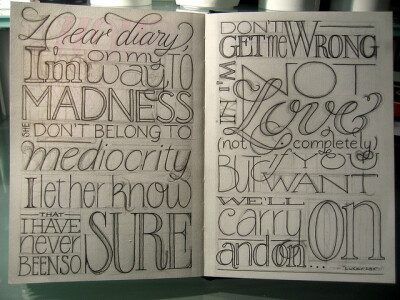 Dear diary,
I'm on my way to
MADNESS
SHE DON'T BELONG TO
mediocrity
I let her know
THAT
I HAVE
never
BEEN SO
SURE
DON'T
GET me WRONG
I'M NOT
IN Love
(not completely)
BUT if YOU
WANT
WE'LL
carry
on
and on...